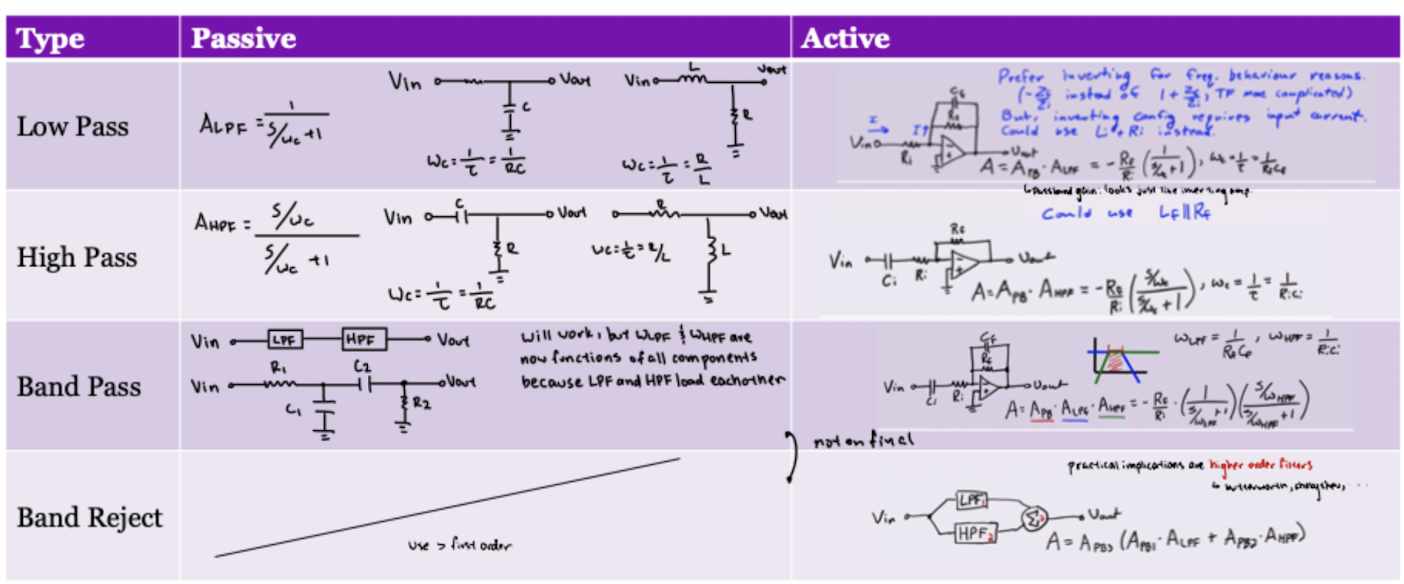 Type Passive Active
Low Pass
A_LPF = 1 / (s/ωc + 1)
Vin Vout
C
ωc = 1/τ = 1/RC
Vin L Vout
R
ωc = 1/τ = R/L
Prefer inverting for freq. behaviour reasons.
(-Zf/Zi instead of 1 + Zf/Zi, TF more complicated)
But, inverting config requires input current.
Could use Li + Ri instead.
I If Cf Rf
Vin Ri Vout
A = A_PB · A_LPF = -Rf/Ri (1 / (s/ωc + 1)), ωc = 1/τ = 1/RfCf
↳ passband gain: looks just like inverting amp.
High Pass
A_HPF = (s/ωc) / (s/ωc + 1)
Vin C Vout
R
ωc = 1/τ = 1/RC
R Vout
ωc = 1/τ = R/L
L
Could use Lf || Rf
Rf
Vin Ci Ri Vout
A = A_PB · A_HPF = -Rf/Ri ((s/ωc) / (s/ωc + 1)), ωc = 1/τ = 1/RiCi
Band Pass
Vin LPF HPF Vout
Vin R1 C2 Vout
C1 R2
will work, but ωLPF & ωHPF are
now functions of all components
because LPF and HPF load eachother
Cf
Rf
Vin Ci Ri Vout
ωLPF = 1/RfCf, ωHPF = 1/RiCi
A = A_PB · A_LPF · A_HPF = -Rf/Ri · (1 / (s/ωLPF + 1)) ((s/ωHPF) / (s/ωHPF + 1))
not on final
Band Reject
use > first order
practical implications are higher order filters
Vin LPF1 HPF2 Σ3 Vout
A = A_PB3 (A_PB1 · A_LPF + A_PB2 · A_HPF)